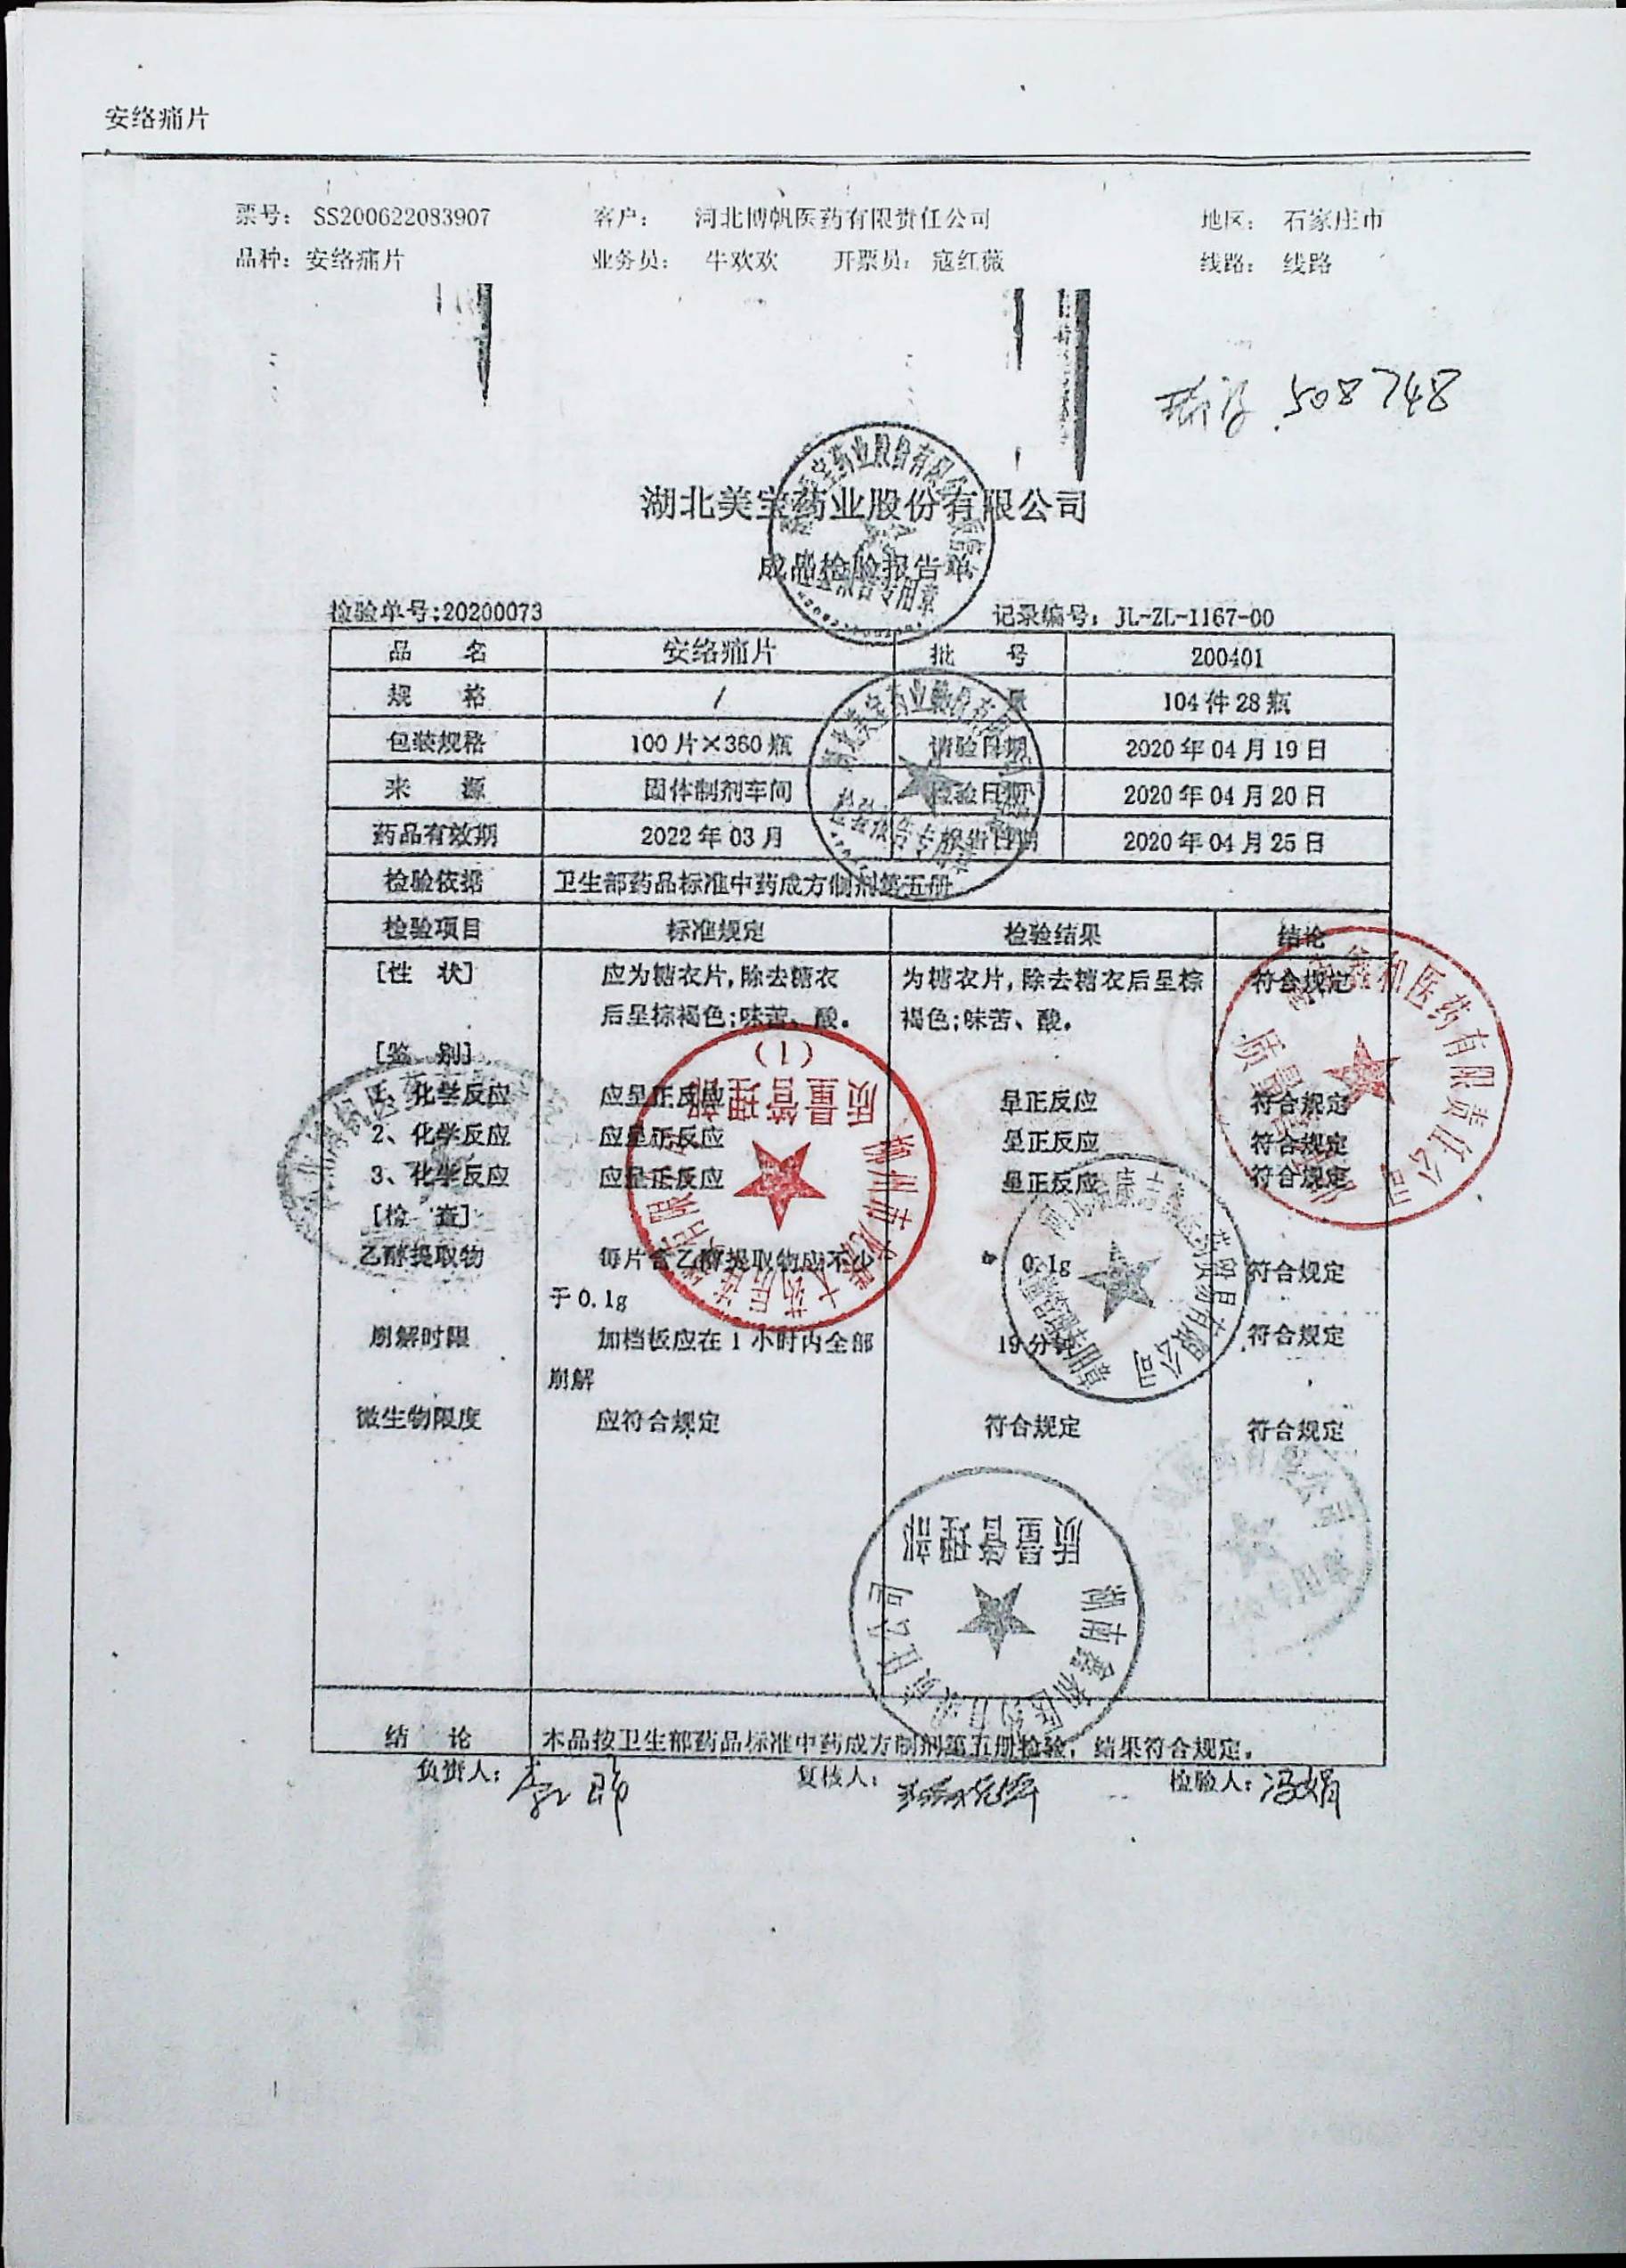 安络痛片
票号： SS200622083907 客户： 河北博帆医药有限责任公司 地区： 石家庄市
品种：安络痛片 业务员： 牛欢欢 开票员：寇红薇 线路： 线路
508748
湖北美宝药业股份有限公司
成品检验报告单
检验单号:20200073 记录编号：JL-ZL-1167-00
品 名 安络痛片 批 号 200401
规 格 / 量 104件28瓶
包装规格 100片×360瓶 请验日期 2020年04月19日
来 源 固体制剂车间 检验日期 2020年04月20日
药品有效期 2022年03月 报告日期 2020年04月25日
检验依据 卫生部药品标准中药成方制剂第五册
检验项目 标准规定 检验结果 结论
[性 状] 应为糖衣片,除去糖衣 为糖衣片,除去糖衣后呈棕 符合规定
后呈棕褐色;味苦、酸。 褐色;味苦、酸。
[鉴 别]
1、化学反应 应呈正反应 呈正反应 符合规定
2、化学反应 应呈正反应 呈正反应 符合规定
3、化学反应 应呈正反应 呈正反应 符合规定
[检 查]
乙醇提取物 每片含乙醇提取物应不少 0.1g 符合规定
于0.1g
崩解时限 加档板应在1小时内全部 19分钟 符合规定
崩解
微生物限度 应符合规定 符合规定 符合规定
结 论 本品按卫生部药品标准中药成方制剂第五册检验，结果符合规定。
负责人： 复核人： 检验人：冯娟
质量管理部
(1)
质量管理部